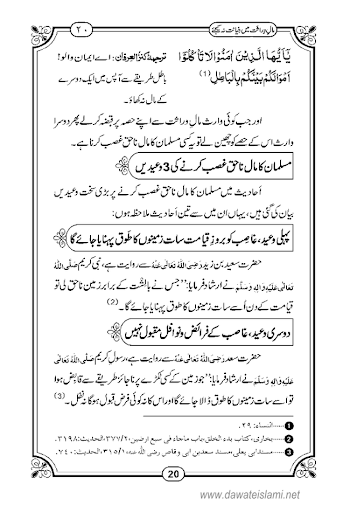 مالِ وراثت میں خیانت نہ کیجئے
٢٠
يٰۤاَيُّهَا الَّذِيْنَ اٰمَنُوْا لَا تَاْكُلُوْۤا
اَمْوَالَكُمْ بَيْنَكُمْ بِالْبَاطِلِ (1)
ترجمۂ کنزُالعِرفان: اے ایمان والو!
باطل طریقے سے آپس میں ایک دوسرے
کے مال نہ کھاؤ۔
اور جب کوئی وارث مالِ وراثت سے اپنے حصہ پر قبضہ کرلے پھر دوسرا
وارث اس کے حصے کو چھین لے تو یہ کسی مسلمان کا مال ناحق غصب کرنا ہے۔
مسلمان کا مال ناحق غصب کرنے کی 3 وعیدیں
اَحادیث میں مسلمان کا مال ناحق غصب کرنے پر بڑی سخت وعیدیں
بیان کی گئی ہیں، یہاں ان میں سے تین اَحادیث ملاحظہ ہوں:
پہلی وعید، غاصب کو بروزِ قیامت سات زمینوں کا طوق پہنایا جائے گا
حضرت سعید بن زید رَضِیَ اللّٰہُ تَعَالٰی عَنْہُ سے روایت ہے، نبی کریم صَلَّی اللّٰہُ
تَعَالٰی عَلَیْہِ وَاٰلِہٖ وَسَلَّم نے ارشاد فرمایا: ’’جس نے بالشت کے برابر زمین ناحق لی تو
قیامت کے دن اُسے سات زمینوں کا طوق پہنایا جائے گا۔ (2)
دوسری وعید، غاصب کے فرائض و نوافل مقبول نہیں
حضرت سعد رَضِیَ اللّٰہُ تَعَالٰی عَنْہُ سے روایت ہے، رسولِ کریم صَلَّی اللّٰہُ تَعَالٰی
عَلَیْہِ وَاٰلِہٖ وَسَلَّم نے ارشاد فرمایا: ’’جو زمین کے کسی ٹکڑے پر ناجائز طریقے سے قابض ہوا
تو اسے سات زمینوں کا طوق ڈالا جائے گا اور اس کا نہ کوئی فرض قبول ہوگا نہ نفل۔ (3)
1 ......النساء: ٢٩.
2 ......بخاری، کتاب بدء الخلق، باب ماجاء فی سبع ارضین، ٢/٣٧٧، الحدیث: ٣١٩٨.
3 ......مسند ابی یعلی، مسند سعد بن ابی وقاص رضی اللّٰہ عنہ، ١/٣١٥، الحدیث: ٧٤٠.
20
www.dawateislami.net